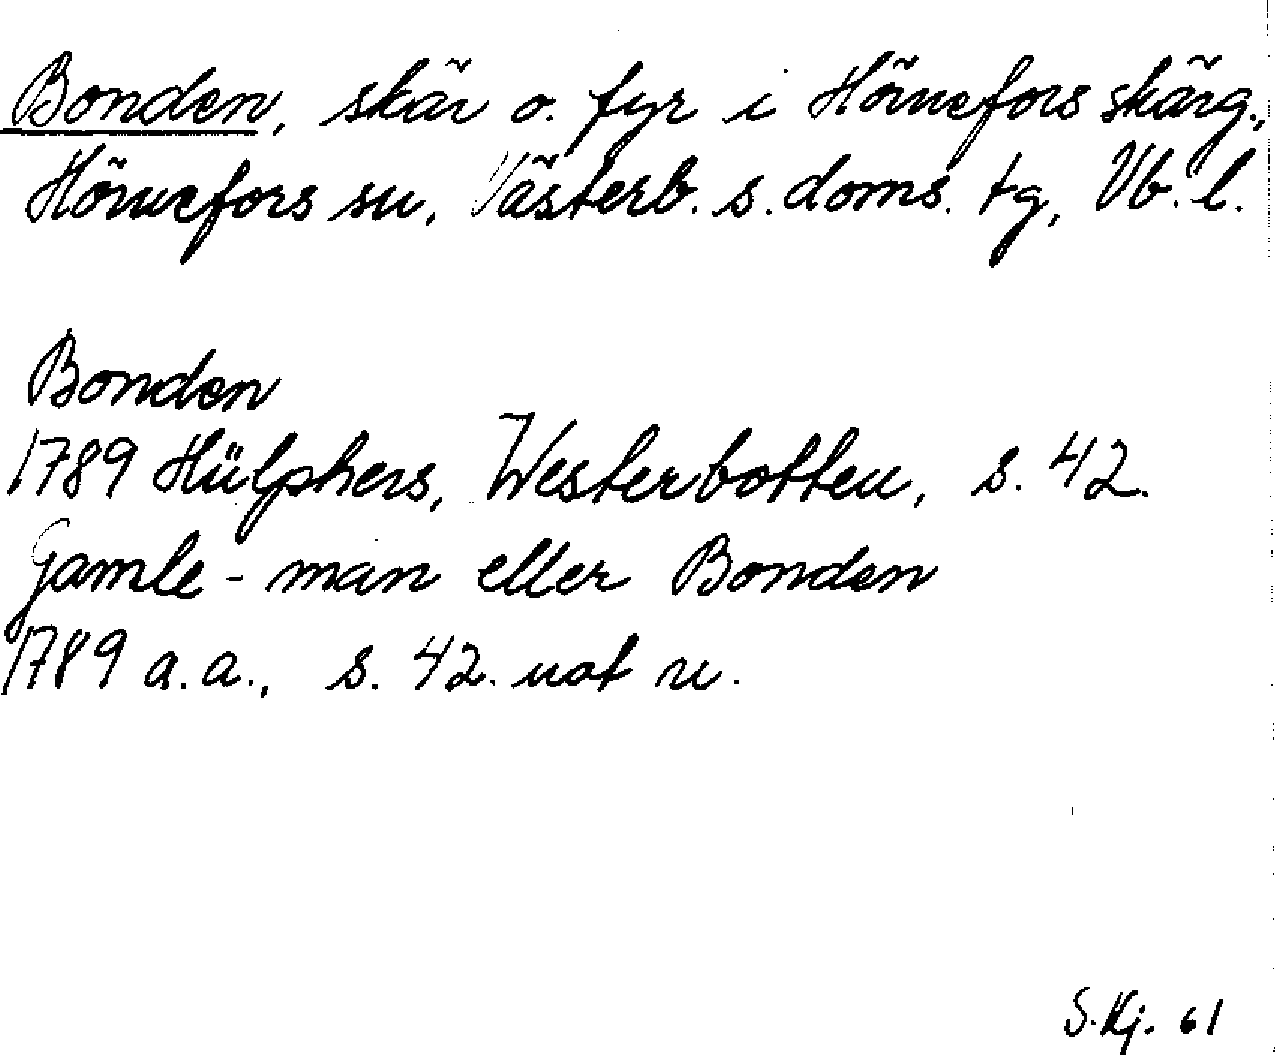 Bonden, skär o. fyr i Hörnefors skärg.,
Hörnefors sn, Västerb. s. doms. tg, Vb. l.
Bonden
1789 Hülphers, Westerbotten, s. 42.
Gamle-man eller Bonden
1789 a.a., s. 42. not n.
S. Kj. 61